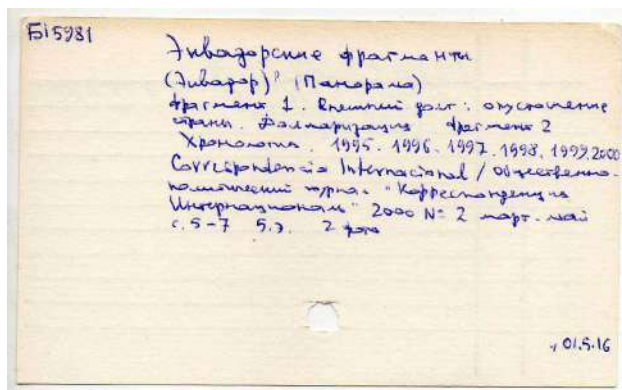 Б15981
Эквадорские фрагменты
(Эквадор) (Панорама)
фрагмент 1. Внешний долг: опустошение
страны. Долларизация фрагмент 2
Хронология. 1995. 1996. 1997. 1998. 1999. 2000
Correspondencia Internacional / Общественно-
политический журнал "Корреспонденция
Интернационал" 2000 № 2 март-май
с. 5-7 5.э. 2 фото
01.9.16